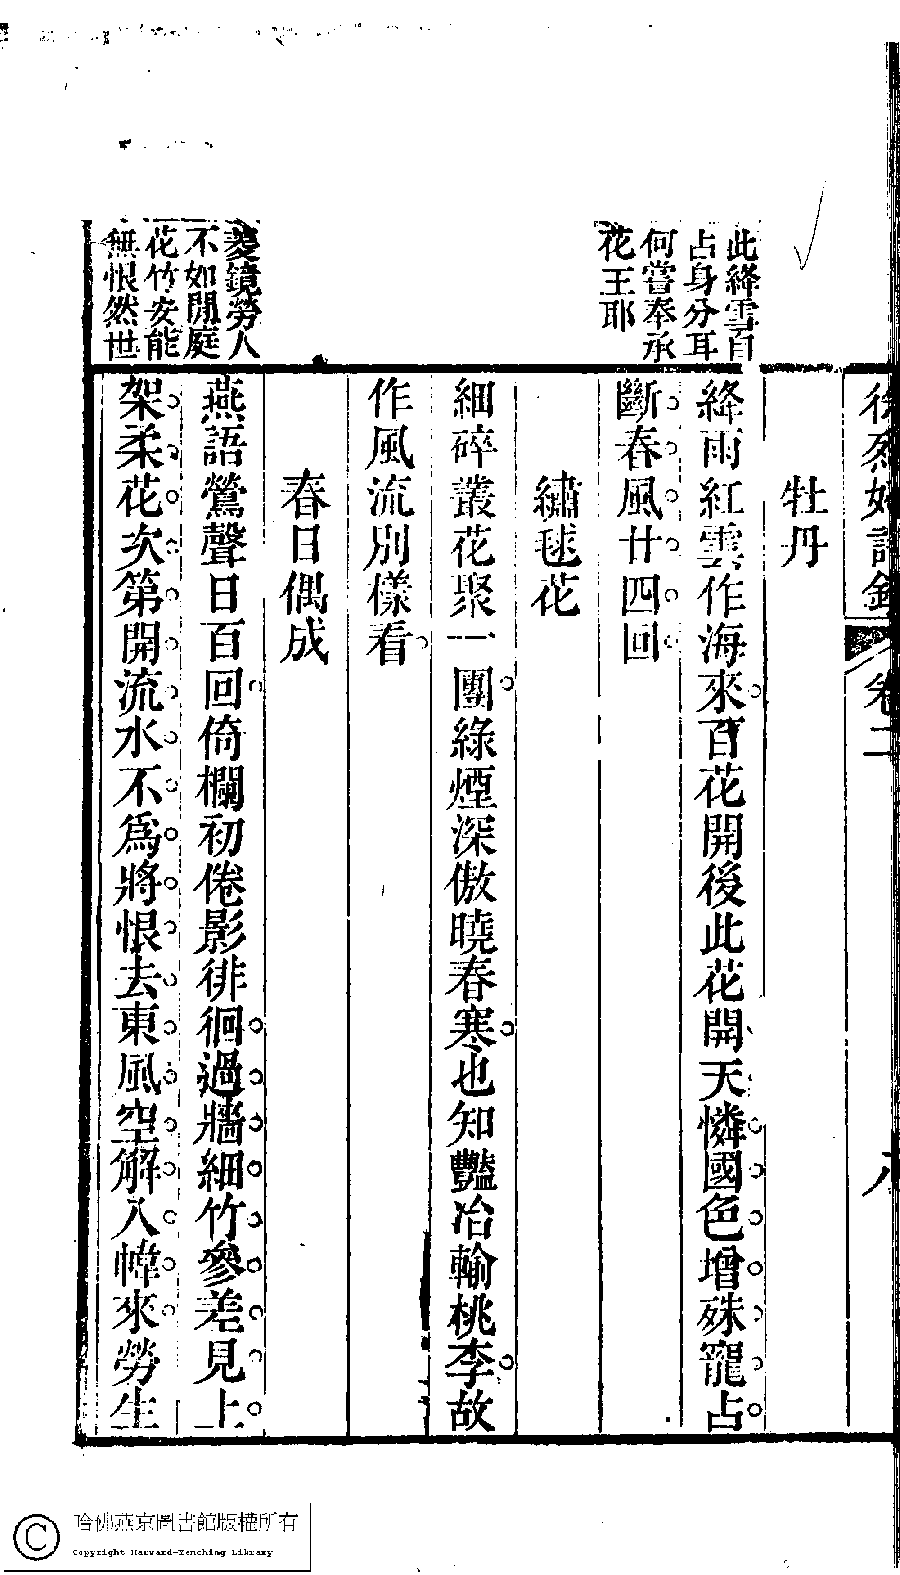 徐烈婦詩鈔 卷二 八
牡丹
絳雨紅雲作海來百花開後此花開天憐國色增殊寵占
斷春風廿四回
繡毬花
細碎叢花聚一團綠煙深傲曉春寒也知豔冶輸桃李故
作風流別樣看
春日偶成
燕語鶯聲日百回倚欄初倦影徘徊過牆細竹參差見上
架柔花次第開流水不爲將恨去東風空解入幃來勞生
此絳雪自
占身分耳
何嘗奉承
花王耶
菱鏡勞人
不如閒庭
花竹安能
無恨然世
哈佛燕京圖書館版權所有
Copyright Harvard-Yenching Library